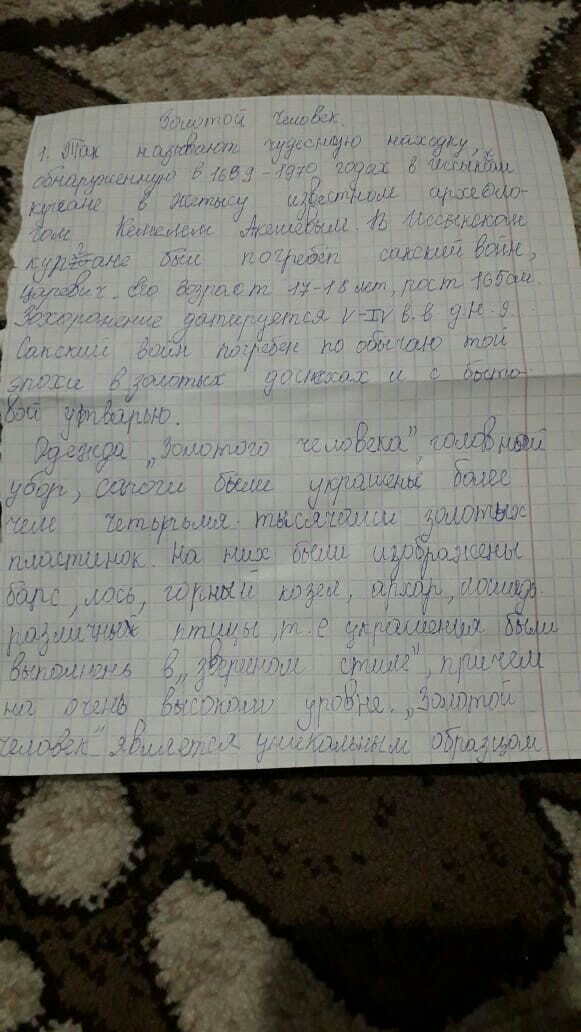 Золотой человек.
1. Так называют чудесную находку,
обнаруженную в 1969-1970 годах в Иссыком
кургане в Жетысу известном археоло-
гом Кемелем Акешевым. В Иссынском
кургане был погребён сакский войн,
царевич. Его возраст 17-18 лет, рост 165 см.
Захоронение датируется V-IV в.в. д.н.э.
Сакский войн погребен по обычаю той
эпохи в золотых доспехах и с быто-
вой утварью.
Одежда „Золотого человека", головный
убор, сапоги были украшены более
чем четырьмя тысячами золотых
пластинок. На них были изображены
барс, лось, горный козел, архар, лошадь
различных птицы, т.е украшения были
выполнены в „зверином стиле", причем
на очень высоком уровне. „Золотой
человек" является уникальным образцом